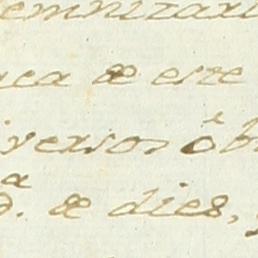 emnizaci
uca de este
iversos ôb
d.ª de dies,